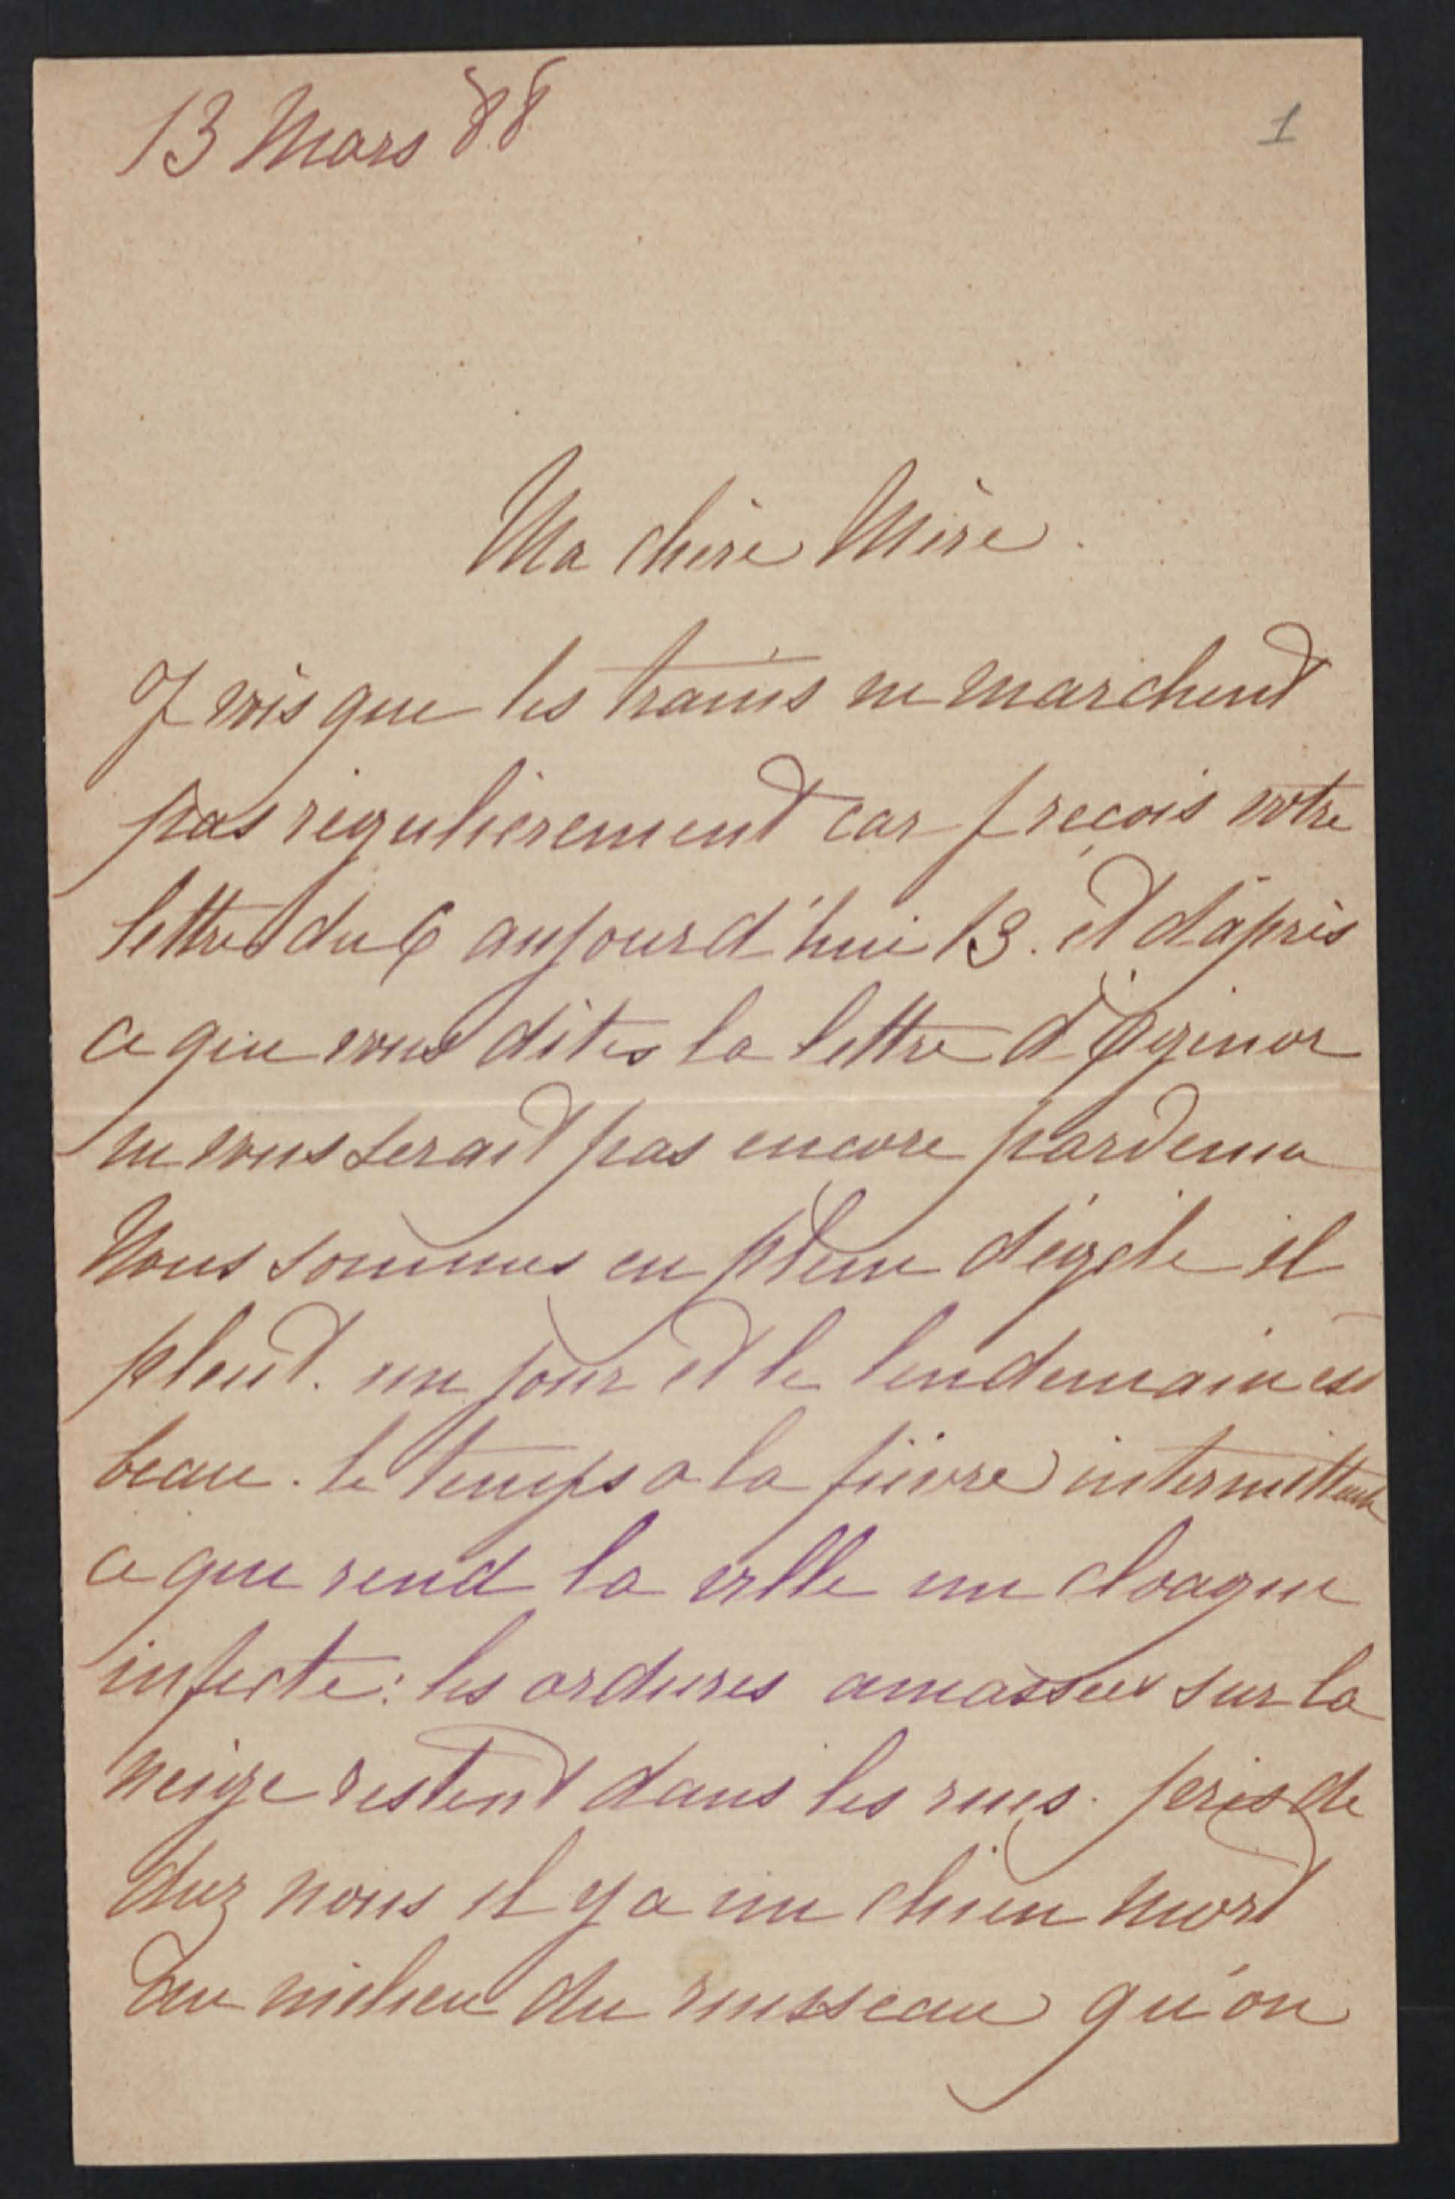 13 Mars 88
1
Ma chère Mère.
J vois que les trains ne marchent
pas régulièrement car j reçois votre
lettre du 6 aujourd'hui 13. et d'après
ce que vous dites la lettre d'
ne vous serait pas encore parvenu
Nous sommes en plein dégele il
pleut. un jour et le lendemain est
beau. le temps a la fièvre intermittente
ce que rend la ville un cloaque
infecte: les ordures amassées sur la
neige restent dans les rues. près de
chez nous il y a un chien mort
au milieu du ruisseau qu'on